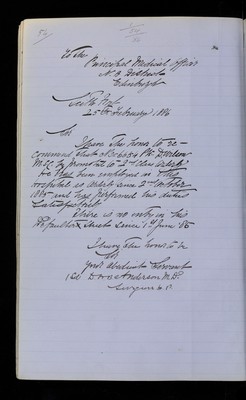 To the
Principal Medical Officer
N.B. District
Edinburgh
25th February 1886
Sir
I have the honor to re-
commend that No 36354 Pte
M.S.C. be promoted to 2nd Class
He has been employed in this
Hospital as since 2nd October
1885 and has performed his duties
Satisfactorily
There is no entry in his
Defaulter Sheet since 1st June '85
I have the honor to be
Sir
Your obedient Servant
Anderson M.D.
Surgeon